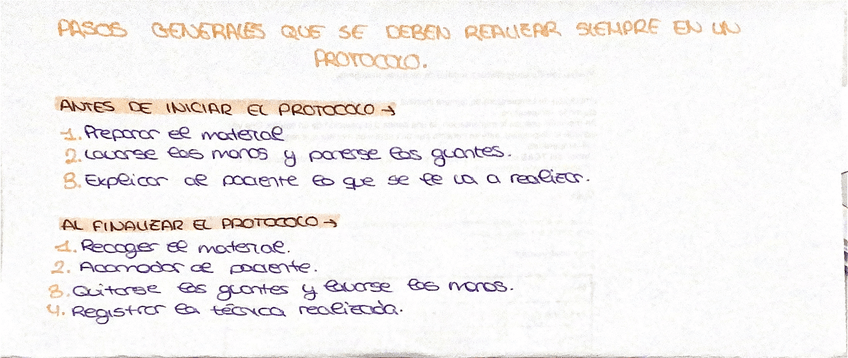 PASOS GENERALES QUE SE DEBEN REALIZAR SIEMPRE EN UN
PROTOCOLO.
ANTES DE INICIAR EL PROTOCOLO →
1. Preparar el material
2. Lavarse los manos y ponerse los guantes.
3. Explicar al paciente lo que se le va a realizar.
AL FINALIZAR EL PROTOCOLO →
1. Recoger el material.
2. Acomodar al paciente.
3. Quitarse los guantes y lavarse los manos.
4. Registrar la técnica realizada.